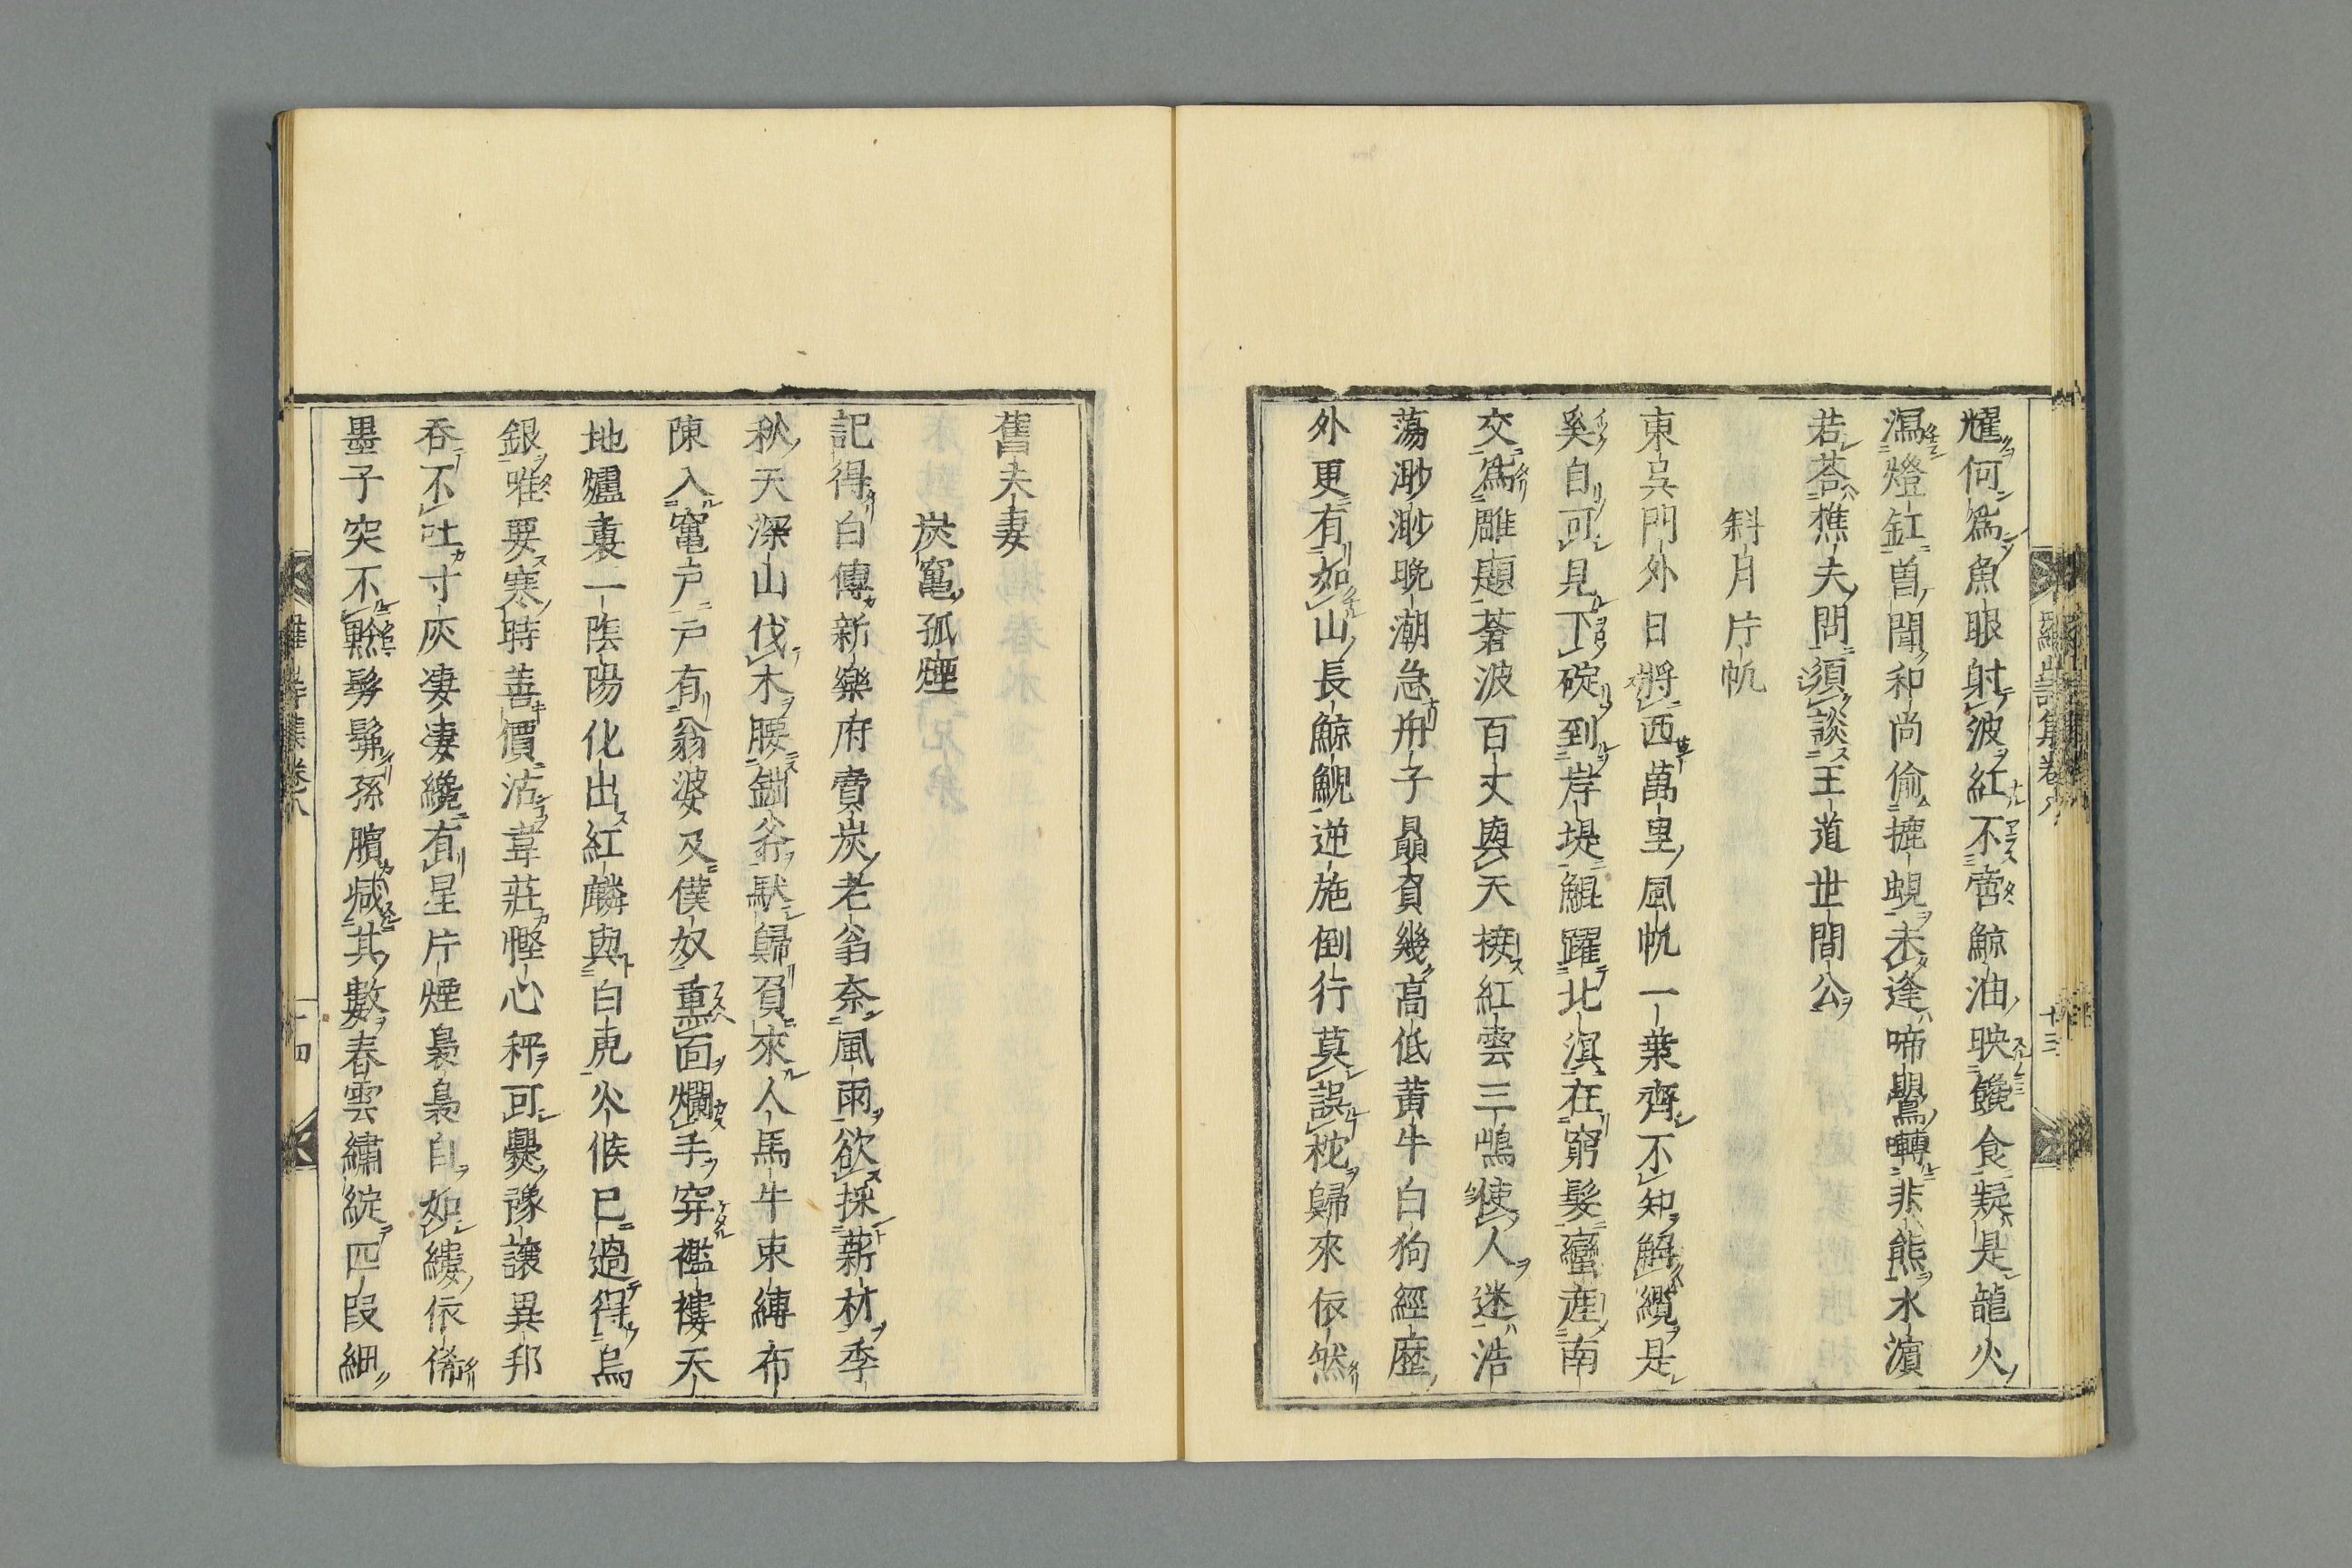 耀何爲魚眼射波紅不啻鯨油映饞食疑是龍火
濕燈缸曽聞和尚偷摝蜆未逢啼鸎轉非熊水濵
若荅樵夫問須談王道世間公
斜月片帆
東吳門外日將西萬里風帆一葉齊不知解纜是
奚自可見下碇到岸堤鯤躍北溟在窮髮蠻産南
交爲雕題蒼波百丈與天接紅雲三鳴使人迷浩
蕩渺渺晩潮急舟子贔負幾高低黃牛白狗經歴
外更有如山長鯨鯢逆施倒行莫誤柁歸來依然
舊夫妻
炭竃孤煙
記得白傳新樂府賣炭老翁奈風雨欲採薪材季
秋天深山伐木腰釧斧馱歸負來人馬牛束縛布
陳入竃戸戸有翁婆及僕奴熏面爛手穿襤褸天
地爐裏一陰陽化出紅麟與白虎火候已過得烏
銀唯要寒時善價沽葦莊慳心秤可爨豫讓異邦
吞不吐寸灰凄凄纔有星片煙裊裊自如縷依俙
墨子突不黔髣髴孫臏減其數春雲繡綻四段細
羅山詩集卷八
十三
詩集卷八
十四